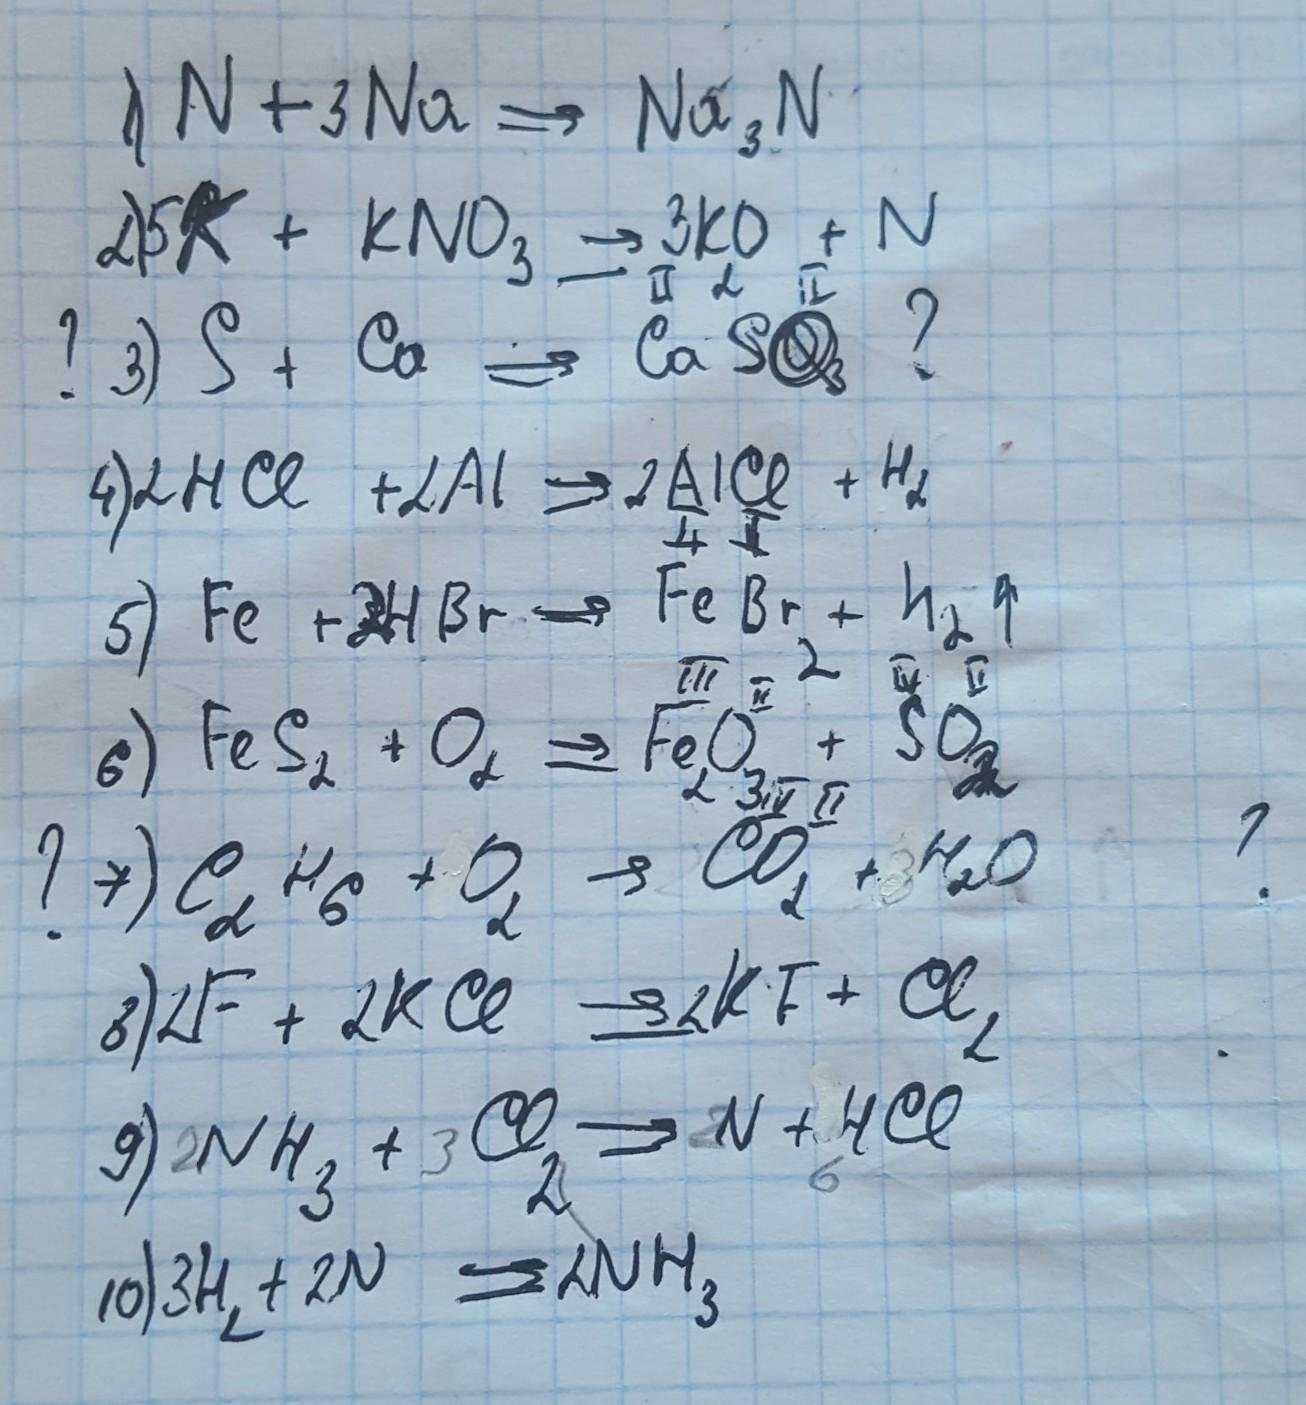 1) N + 3Na ⇒ Na₃N
2) 5K + KNO₃ → 3K₂O + N
? 3) S + Ca ⇒ CaS ?
II II
4) 2HCl + 2Al ⇒ 2AlCl + H₂
5) Fe + 2HBr → FeBr₂ + H₂↑
III II IV II
6) FeS₂ + O₂ ⇒ Fe₂O₃ + SO₂
IV II
? 7) C₂H₆ + O₂ → CO₂ + 3H₂O ?
8) 2F + 2KCl ⇒ 2KF + Cl₂
9) 2NH₃ + 3Cl₂ ⇒ 2N + 6HCl
10) 3H₂ + 2N ⇒ 2NH₃